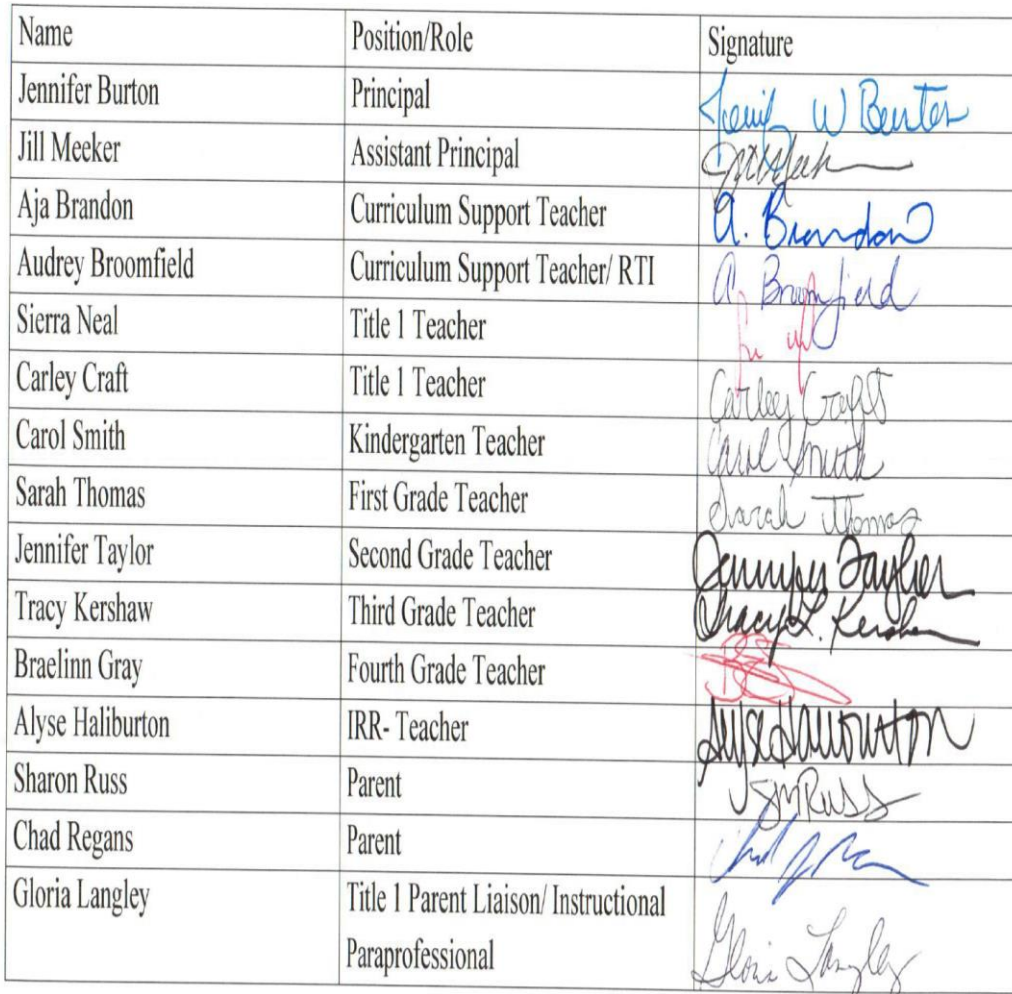 Name Position/Role Signature
Jennifer Burton Principal W
Jill Meeker Assistant Principal
Aja Brandon Curriculum Support Teacher A. Brandon
Audrey Broomfield Curriculum Support Teacher/ RTI A. Broomfield
Sierra Neal Title 1 Teacher
Carley Craft Title 1 Teacher Carley Craft
Carol Smith Kindergarten Teacher Carol Smith
Sarah Thomas First Grade Teacher Sarah Thomas
Jennifer Taylor Second Grade Teacher Jennifer Taylor
Tracy Kershaw Third Grade Teacher Tracy L. Kershaw
Braelinn Gray Fourth Grade Teacher BG
Alyse Haliburton IRR- Teacher Alyse Haliburton
Sharon Russ Parent SMRuss
Chad Regans Parent
Gloria Langley Title 1 Parent Liaison/ Instructional
Paraprofessional Gloria Langley